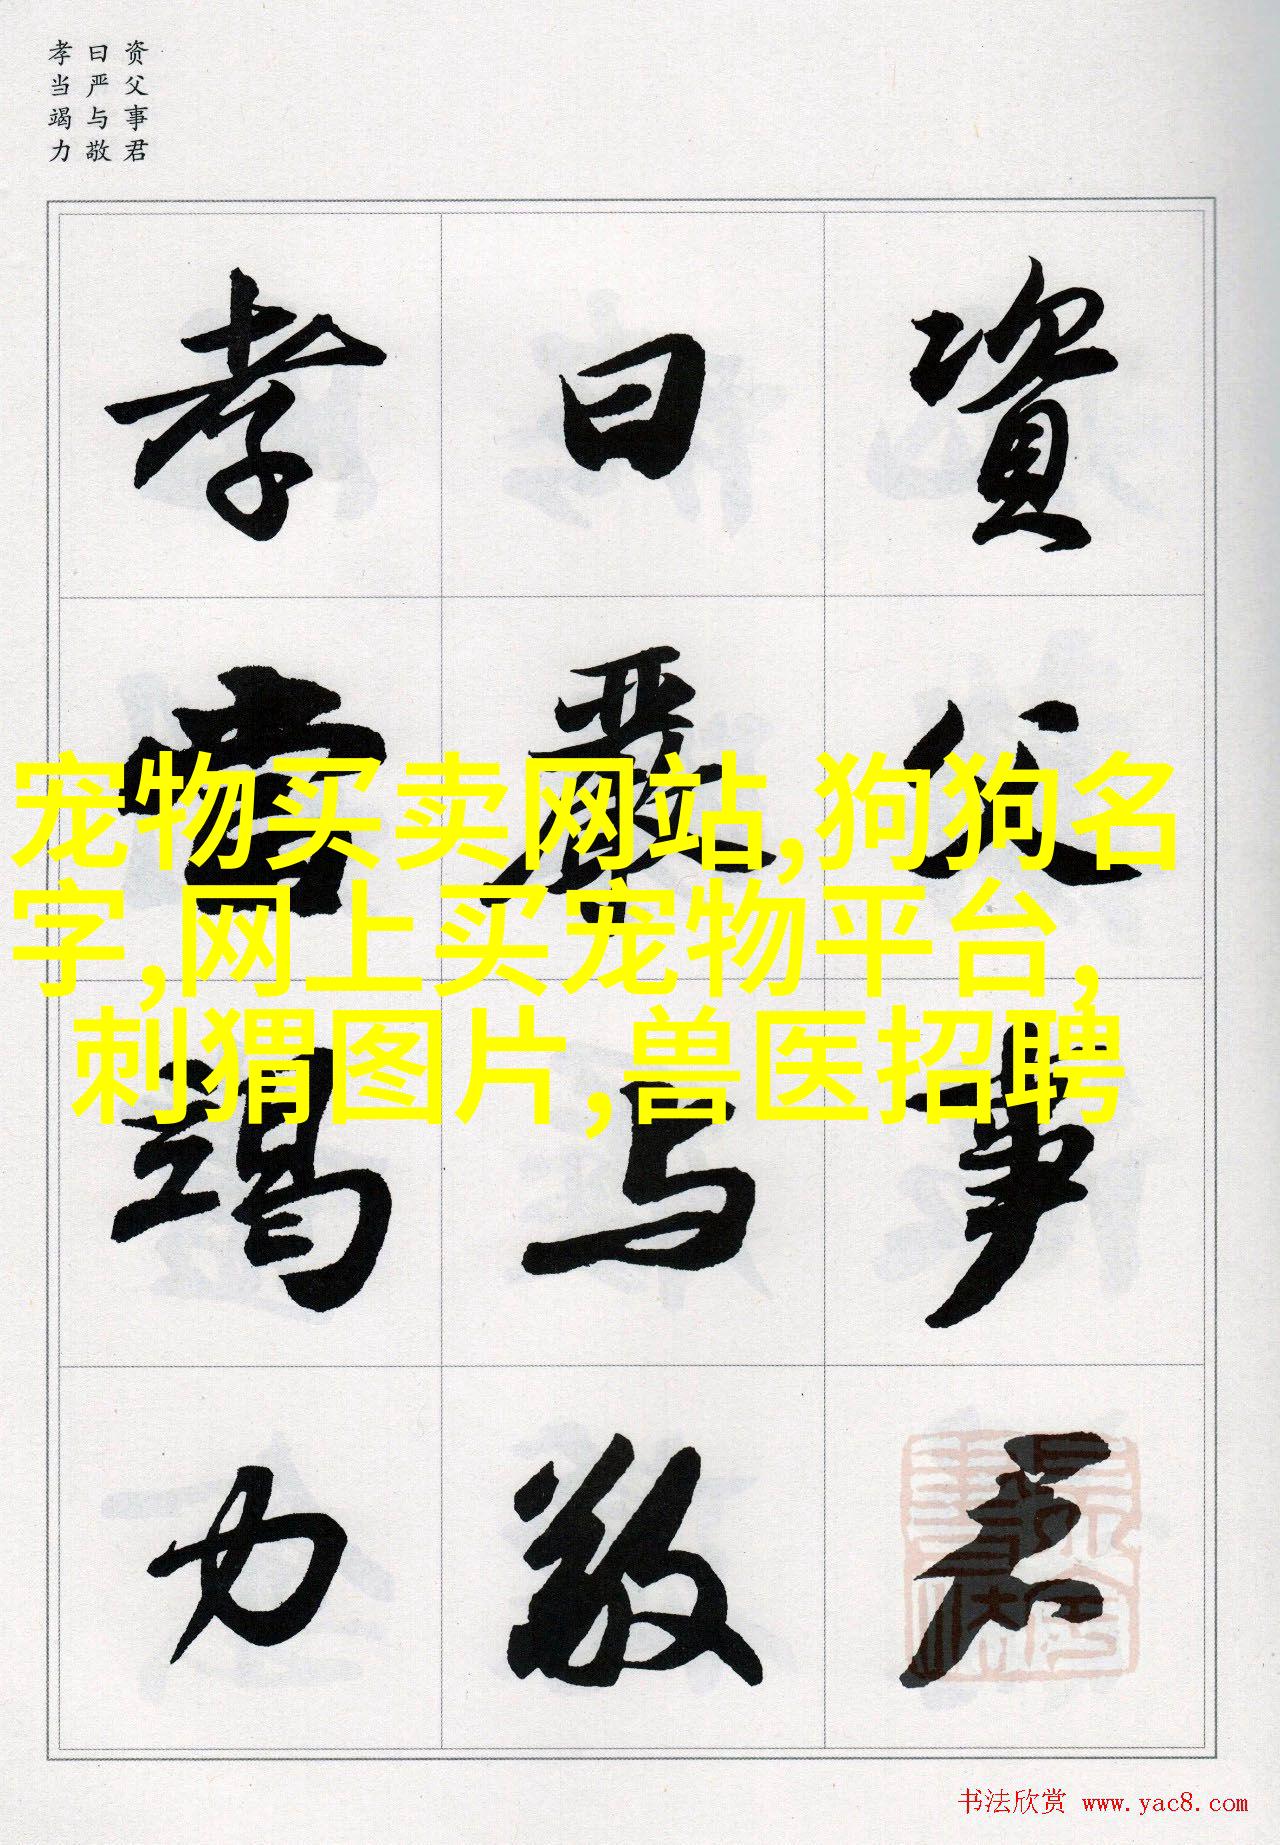 资父事君
曰严与敬
孝当竭力
資父事君
曰嚴与敬
孝當竭力
宠物买卖网站,狗狗名
字,网上买宠物平台,
刺猬图片,兽医招聘
书法欣赏 www.yac8.com